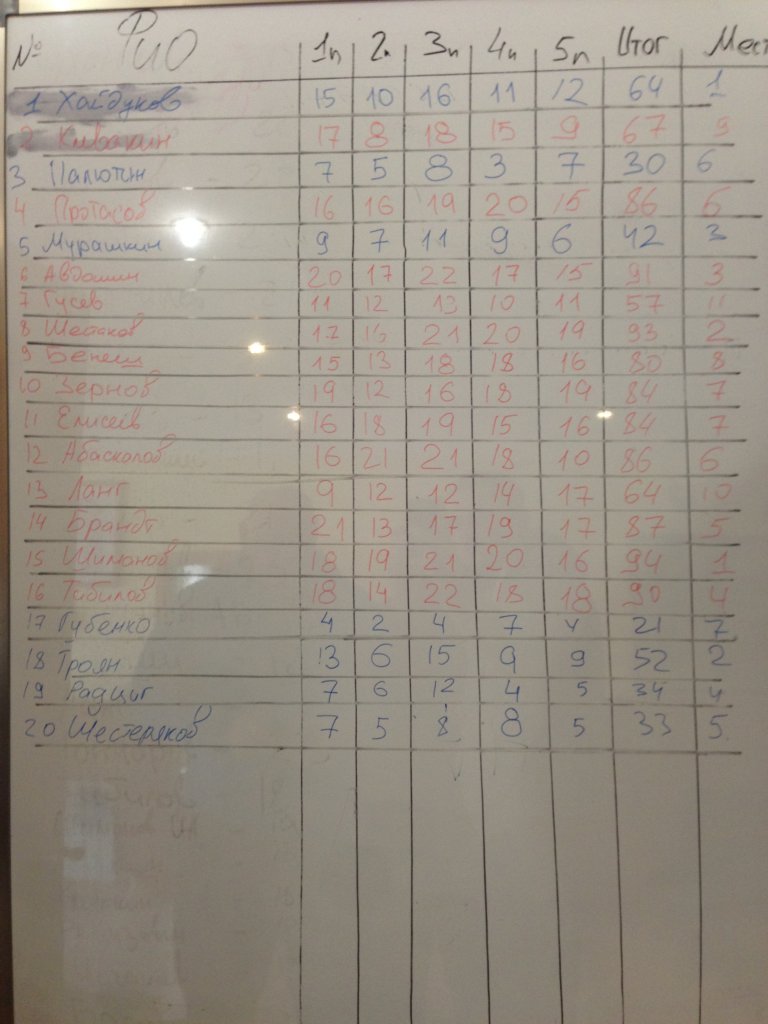 № Фио 1п 2п 3п 4п 5п Итог Мест
1 Хайдуков 15 10 16 11 12 64 1
2 17 8 18 15 9 67 9
3 Палютин 7 5 8 3 7 30 6
4 Протасов 16 16 19 20 15 86 6
5 Мурашкин 9 7 11 9 6 42 3
6 Авдошин 20 17 22 17 15 91 3
7 Гусев 11 12 13 10 11 57 11
8 Шестаков 17 16 21 20 19 93 2
9 Бенеш 15 13 18 18 16 80 8
10 Зернов 19 12 16 18 19 84 7
11 Елисеев 16 18 19 15 16 84 7
12 Абаскалов 16 21 21 18 10 86 6
13 Ланг 9 12 12 14 17 64 10
14 Брандт 21 13 17 19 17 87 5
15 Шиманов 18 19 21 20 16 94 1
16 Табилов 18 14 22 18 18 90 4
17 Губенко 4 2 4 7 4 21 7
18 Троян 13 6 15 9 9 52 2
19 Радциг 7 6 12 4 5 34 4
20 Шестеряков 7 5 8 8 5 33 5